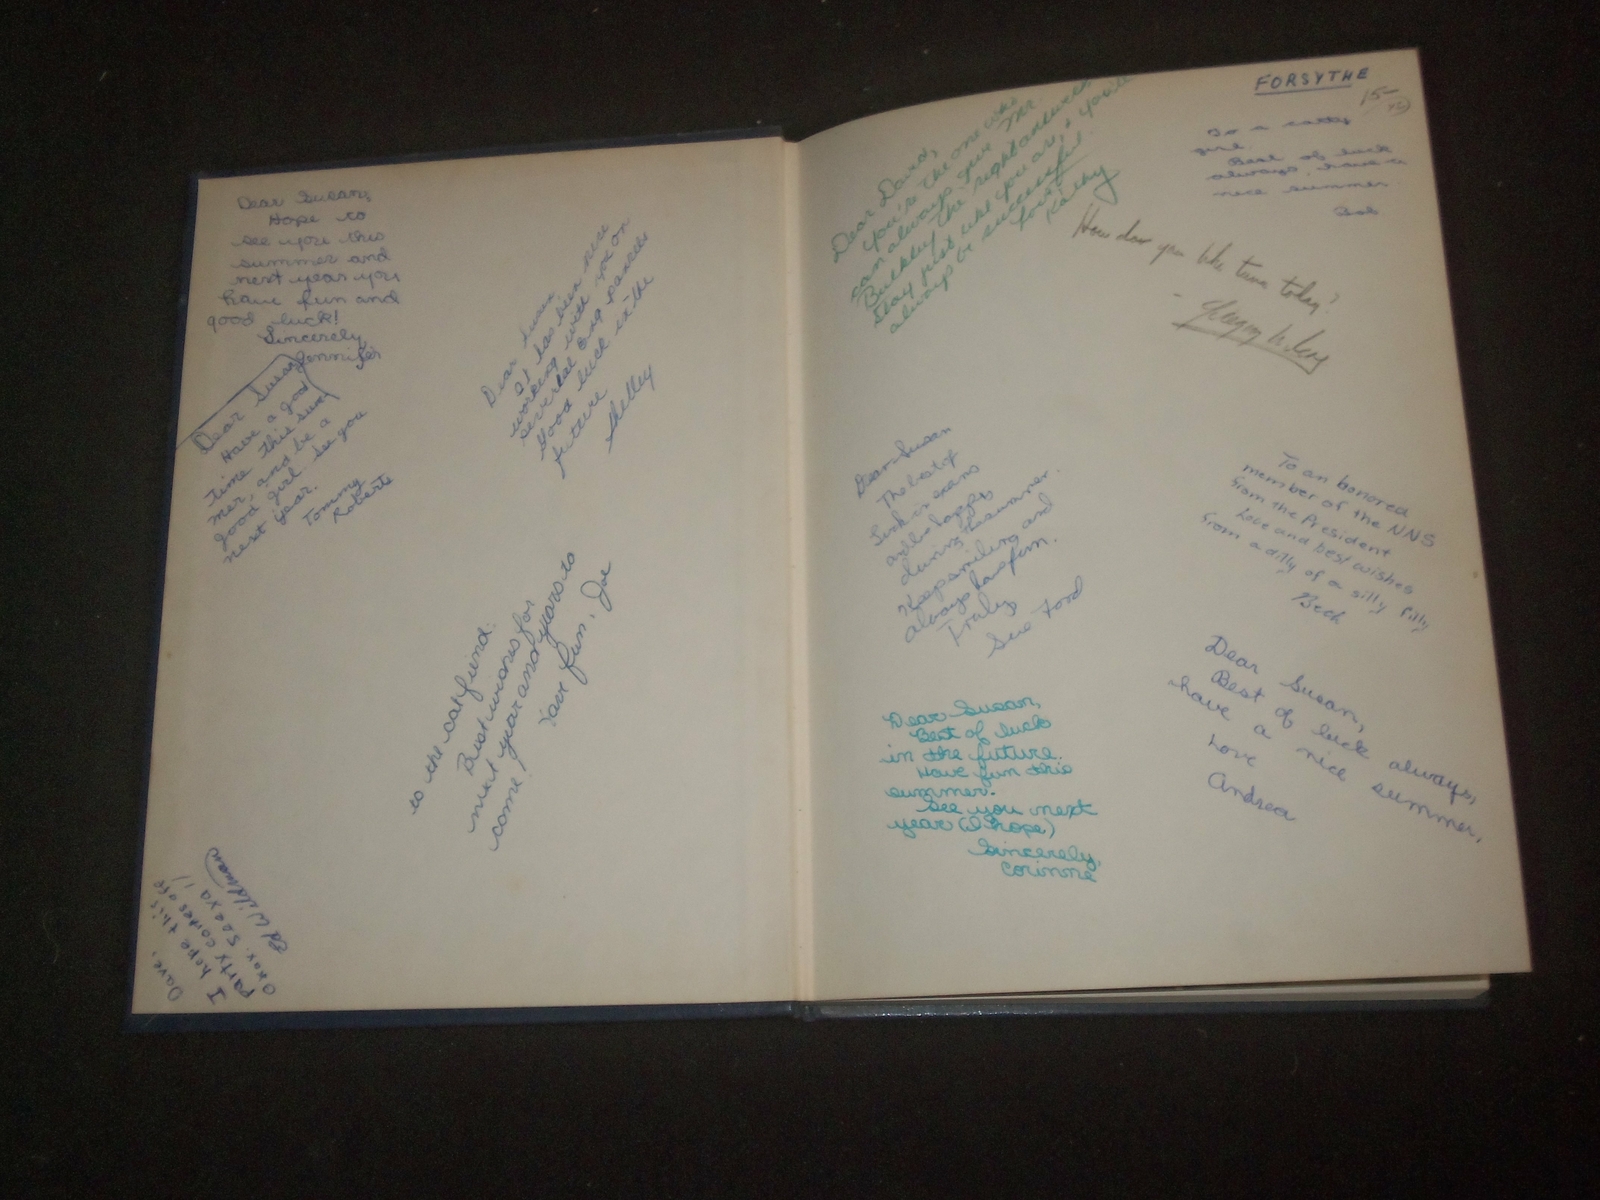 Dear Susan,
Hope to
see you this
summer and
next year you
have fun and
good luck!
Sincerely
Jennifer
Dear Susan
Have a good
time this sum
mer, and be a
good girl. See you
next year.
Tommy
Roberts
Dear Susan
It has been nice
working with you on
several song
Good luck in the
future
Shelley
to the cat fiend:
Best wishes for
next year and years to
come!
Have fun, Joe
Dave,
I hope this
party comes off
O.K.
Ed Wildman
FORSYTHE
15-
To a
girl.
Best of luck
always, have a
nice summer
Bob
Dear David,
You're the one who
can always give Mr.
Buckley the right answer,
Stay just like you are, & you'll
always be successful.
Love,
Kathy
How do you like tuna today?
Dear Susan
The best of
luck on exams
and be happy
during the summer.
Keep smiling and
always have fun.
Truly
Sue Ford
To an honored
member of the NNS
from the President
Love and best wishes
from a dilly of a silly filly
Beck
Dear Susan,
Best of luck always,
have a nice summer,
Love
Andrea
Dear Susan,
Best of luck
in the future.
Have fun this
summer.
See you next
year (I hope)
Sincerely,
Corinne